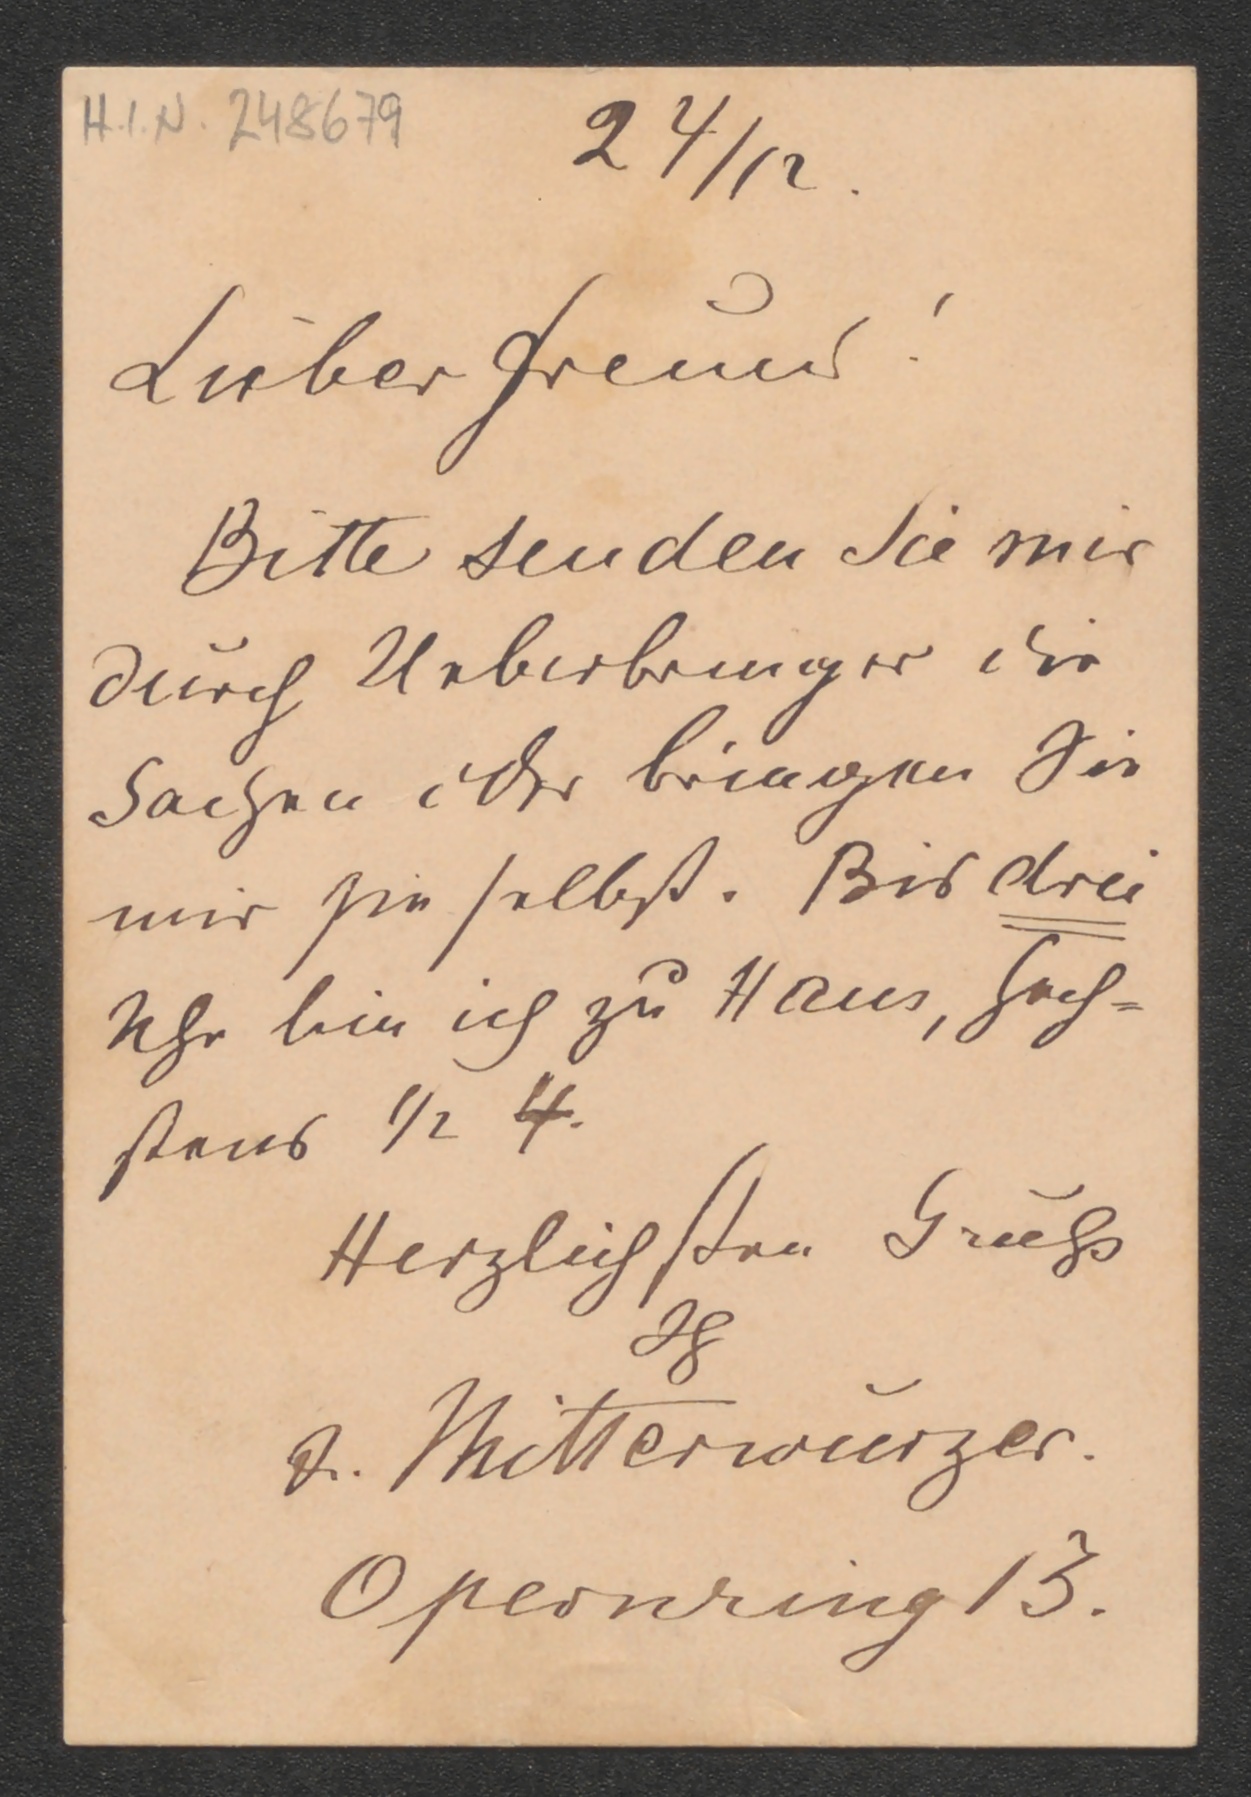 H.I.N. 248679
24/12.
Lieber Freund!
Bitte senden Sie mir
durch Ueberbringer die
Sachen oder bringen Sie
mir sie selbst. Bis drei
Uhr bin ich zu Haus, höch=
stens 1/2 4.
Herzlichsten Gruß
Ihr
F. Mitterwurzer.
Opernring 13.